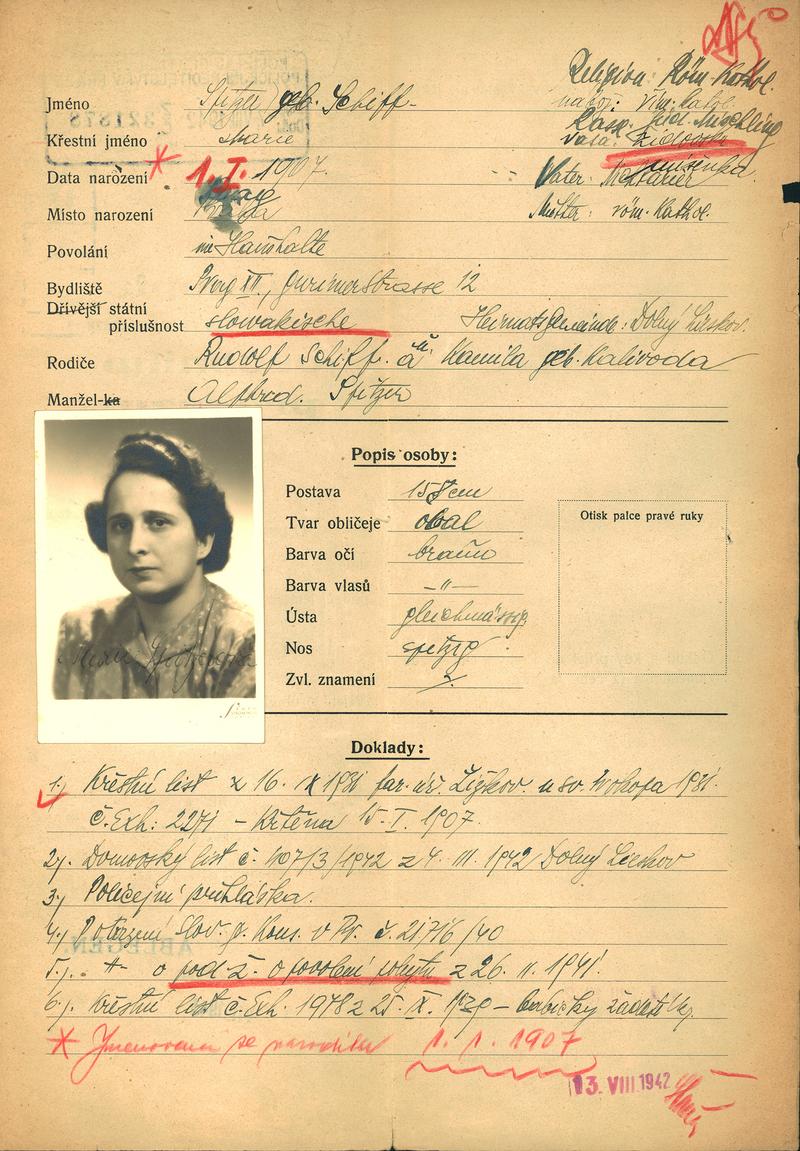 Religion: Röm. Kathol.
Jméno Spitzer geb. Schiff
nábož: řím. kathol.
Rasse: jüd. Mischling
Křestní jméno Marie
rasa: židovská
míšenka
Data narození * 1. I. 1907.
Vater: 
Místo narození Prag
Mutter: röm. Kathol.
Povolání im Haushalte
Bydliště Prag XII., strasse 12
Dřívější státní
příslušnost slowakische Heimatsgemeinde: Dolný Lieskov.
Rodiče Rudolf Schiff. a Kamila geb. Kalivoda
Manžel-ka Alfred. Spitzer
Popis osoby:
Postava 158 cm
Tvar obličeje oval
Barva očí braun
Barva vlasů –"–
Ústa gleichmässig
Nos spitzig
Zvl. znamení
Otisk palce pravé ruky
Doklady:
1.) Křestní list z 16. IX 1931 far. úř. Žižkov u sv. Prokopa 1931.
č. Exh: 2271 – Křtěna 15. I. 1907.
2.) Domovský list č. 1107/3/1942 z 4. III. 1942 Dolný Lieskov
3.) Policejní přihláška.
4.) Slov. g. Kons. v Pr. č. 21716/40
5.) o pod. ž. o povolení pobytu z 26. II. 1941.
6.) Křestní list č. Exh. 1978 z 25. X. – babičky
* Jmenovaná se narodila 1. 1. 1907
13. VIII. 1942
ABLEGEN.